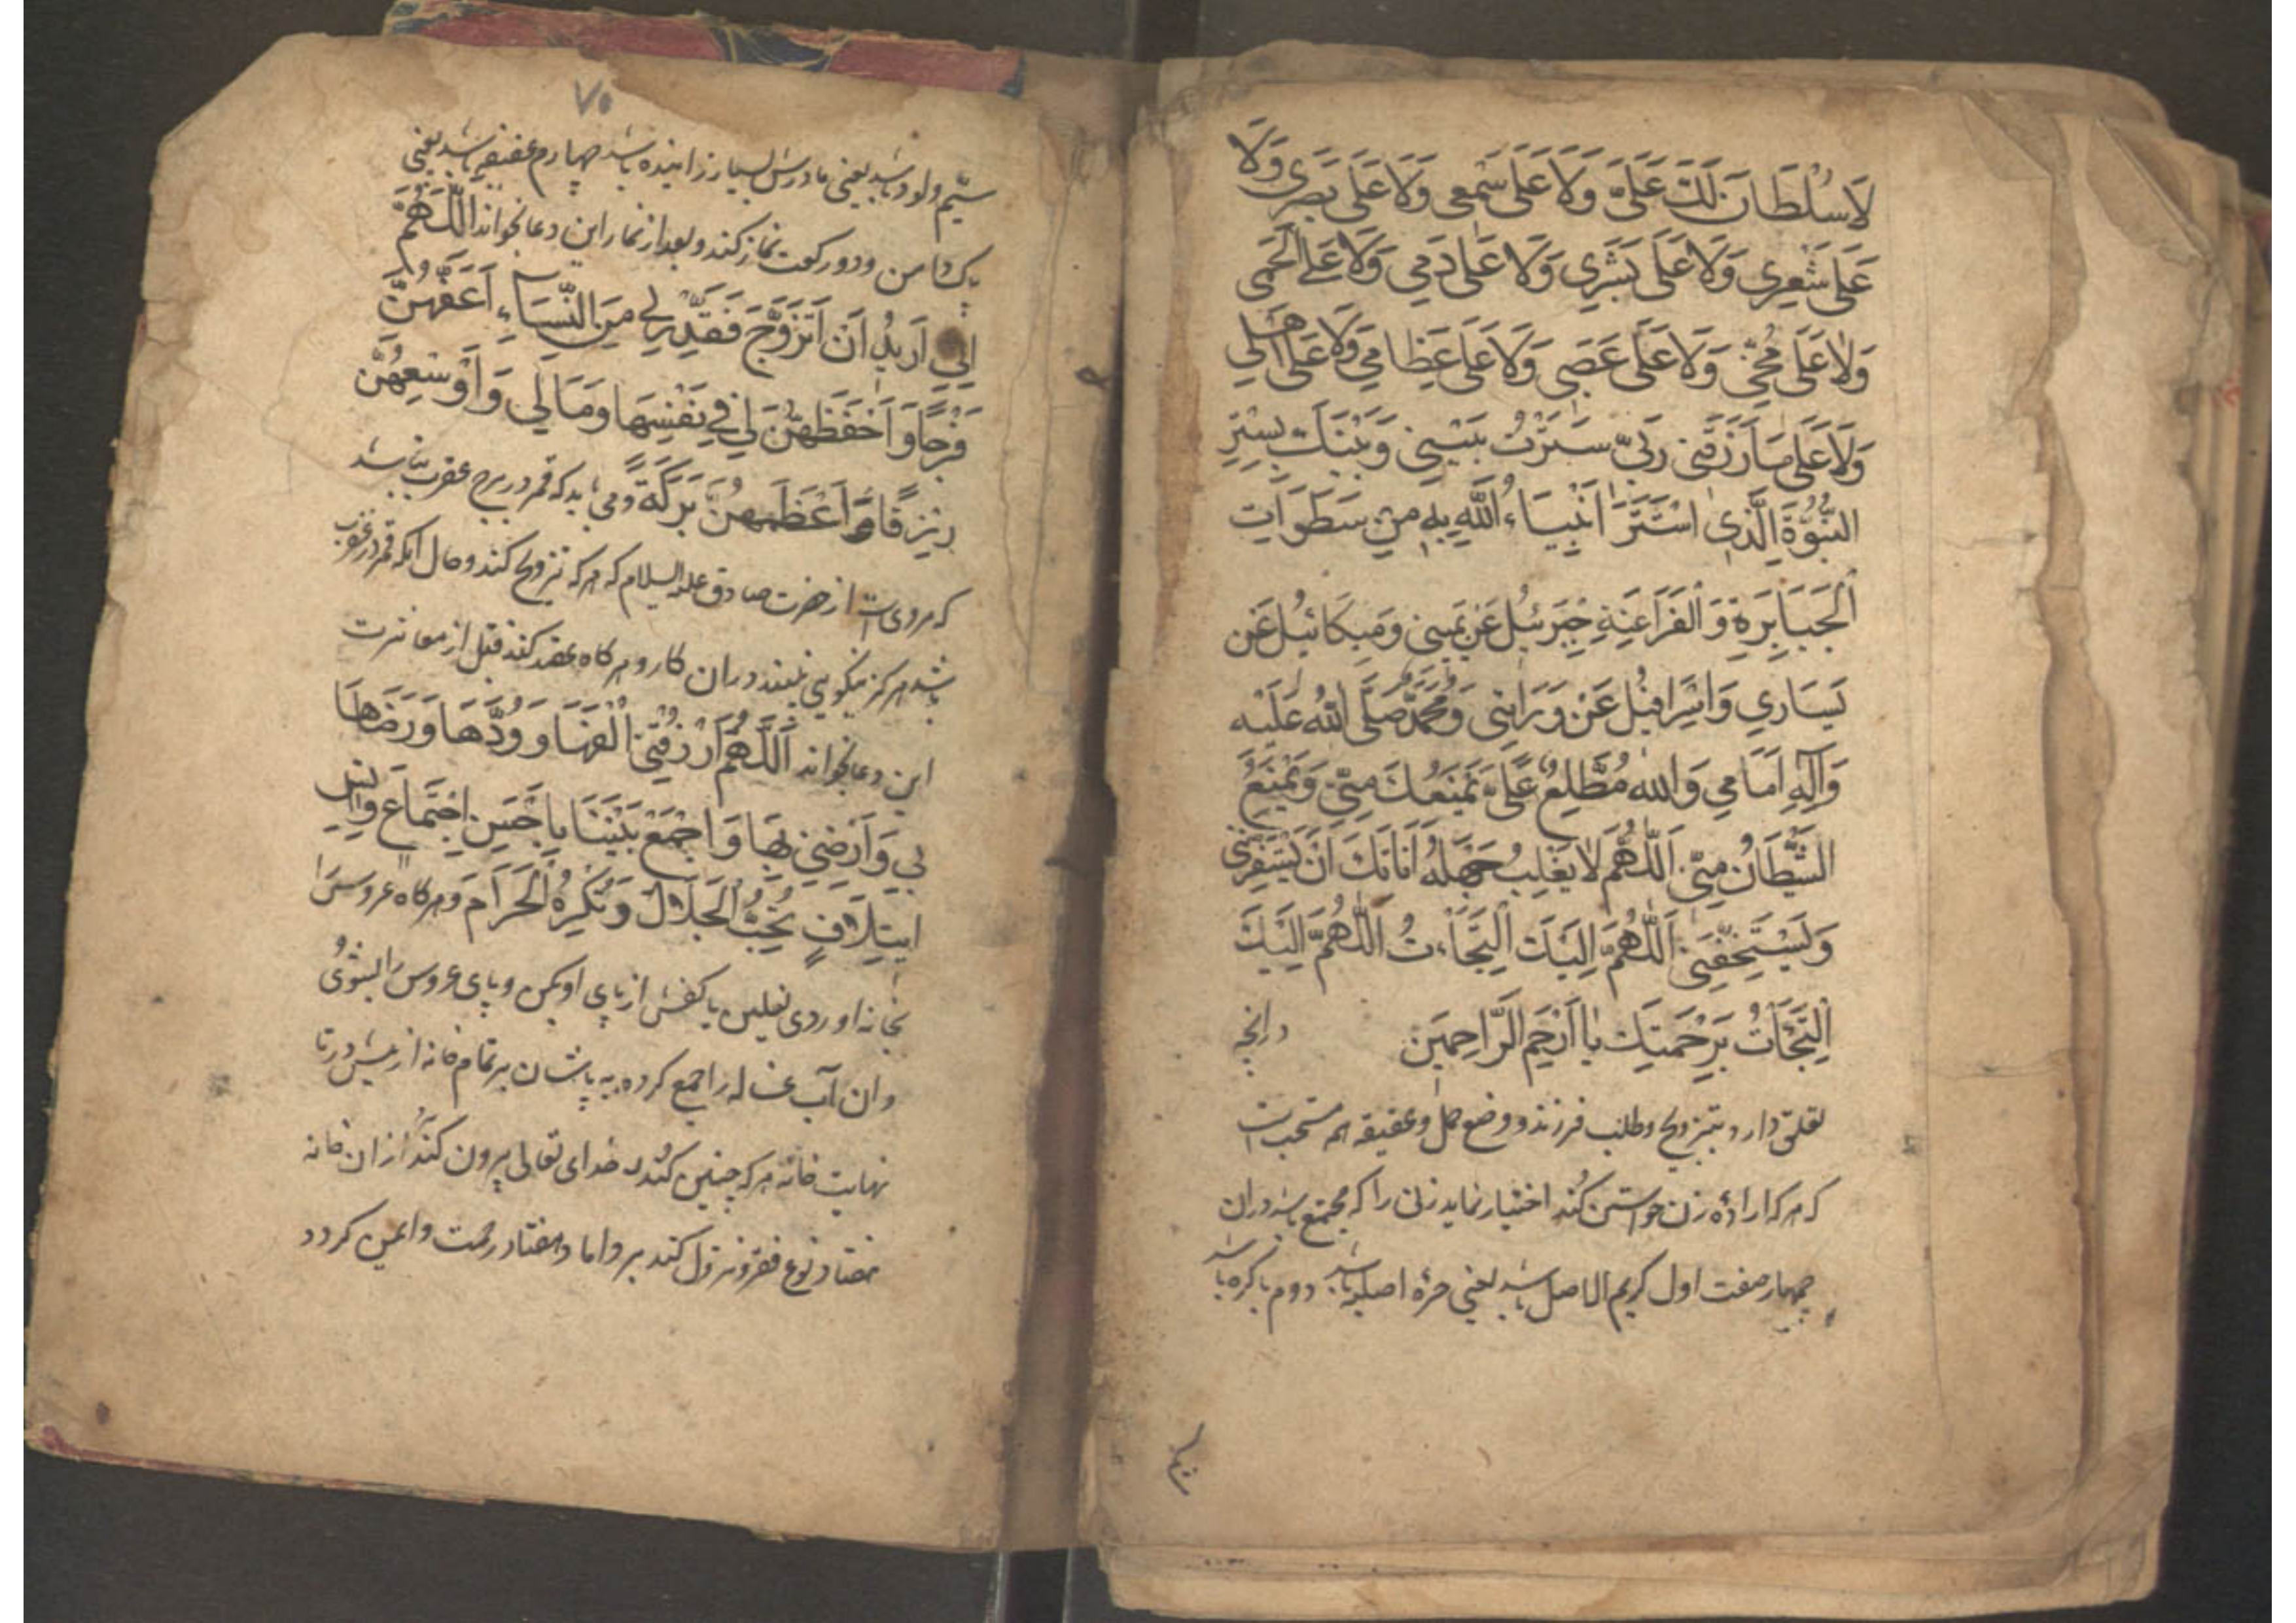 لَا سُلْطَانَ لَكَ عَلَىَّ وَلَا عَلَى سَمْعِى وَلَا عَلَى بَصَرِى وَلَا
عَلَى شَعْرِى وَلَا عَلَى بَشَرِى وَلَا عَلَى دَمِى وَلَا عَلَى لَحْمِى
وَلَا عَلَى مُخِّى وَلَا عَلَى عَصَبِى وَلَا عَلَى عِظَامِى وَلَا عَلَى اَهْلِى
وَلَا عَلَى مَا رَزَقَنِى رَبِّى سَتَرْتُ بَيْنِى وَبَيْنَكَ بِسِتْرِ
النُّبُوَّةِ الَّذِى اسْتَتَرَ اَنْبِيَاءُ اللَّهِ بِهِ مِنْ سَطَوَاتِ
الْجَبَابِرَةِ وَالْفَرَاعِنَةِ جِبْرَئِيلُ عَنْ يَمِينِى وَمِيكَائِيلُ عَنْ
يَسَارِى وَاِسْرَافِيلُ عَنْ وَرَائِى وَمُحَمَّدٌ صَلَّى اللهُ عَلَيْهِ
وَآلِهِ اَمَامِى وَاللهُ مُطَّلِعٌ عَلَىَّ يَمْنَعُكَ مِنِّى وَيَمْنَعُ
الشَّيْطَانَ مِنِّى اَللّٰهُمَّ لَا يَغْلِبُ جَهْلُهُ اَنَاتَكَ اَنْ يَسْتَفِزَّنِى
وَيَسْتَخِفَّنِى اَللّٰهُمَّ اِلَيْكَ الْتَجَاْتُ اَللّٰهُمَّ اِلَيْكَ
الْتَجَاْتُ بِرَحْمَتِكَ يَا اَرْحَمَ الرَّاحِمِينَ درانچه
تعلق دارد بتزویج وطلب فرزند و وضع حمل وعقیقه هم مستحب است
که هرکه اراده زن خواستن کند اختیار نماید زنی را که مجتمع باشد دران
چهار صفت اول کریم الاصل باشد یعنی حره اصلیه باشد دوم باکره باشد
۷۵
سیّم ولود باشد یعنی مادرش بسیار زاینده باشد چهارم عفیفه باشد یعنی
پاک دامن ودو رکعت نماز کند وبعد از نماز این دعا بخواند اَللّٰهُمَّ
اِنِّى اُرِيدُ اَنْ اَتَزَوَّجَ فَقَدِّرْ لِى مِنَ النِّسَاءِ اَعَفَّهُنَّ
فَرْجًا وَاَحْفَظَهُنَّ لِى فِى نَفْسِهَا وَمَالِى وَاَوْسَعَهُنَّ
رِزْقًا وَاَعْظَمَهُنَّ بَرَكَةً ومی باید که قمر در برج عقرب نباشد
که مرویست از حضرت صادق علیه السلام که هرکه تزویج کند وحال انکه قمر در عقرب
باشد هرگز نیکویی نبیند دران کار وهرگاه عقد کند قبل از معاشرت
این دعا بخواند اَللّٰهُمَّ ارْزُقْنِى اِلْفَهَا وَوُدَّهَا وَرِضَاهَا
بِى وَاَرْضِنِى بِهَا وَاجْمَعْ بَيْنَنَا بِاَحْسَنِ اجْتِمَاعٍ وَاَنْسِ
ايتِلَافٍ تُحِبُّ الْحَلَالَ وَتُكْرِهُ الْحَرَامَ وهرگاه عروس را
بخانه اوردی نعلین یا کفش از پای او بکن وپای عروس را بشوی
وان آب غساله را جمع کرده به پاشان بر تمام خانه از پیش در تا
نهایت خانه هرکه چنین کند خدای تعالی بیرون کند از ان خانه
هفتاد نوع فقر ونزول کند بر داماد هفتاد رحمت وایمن گردد